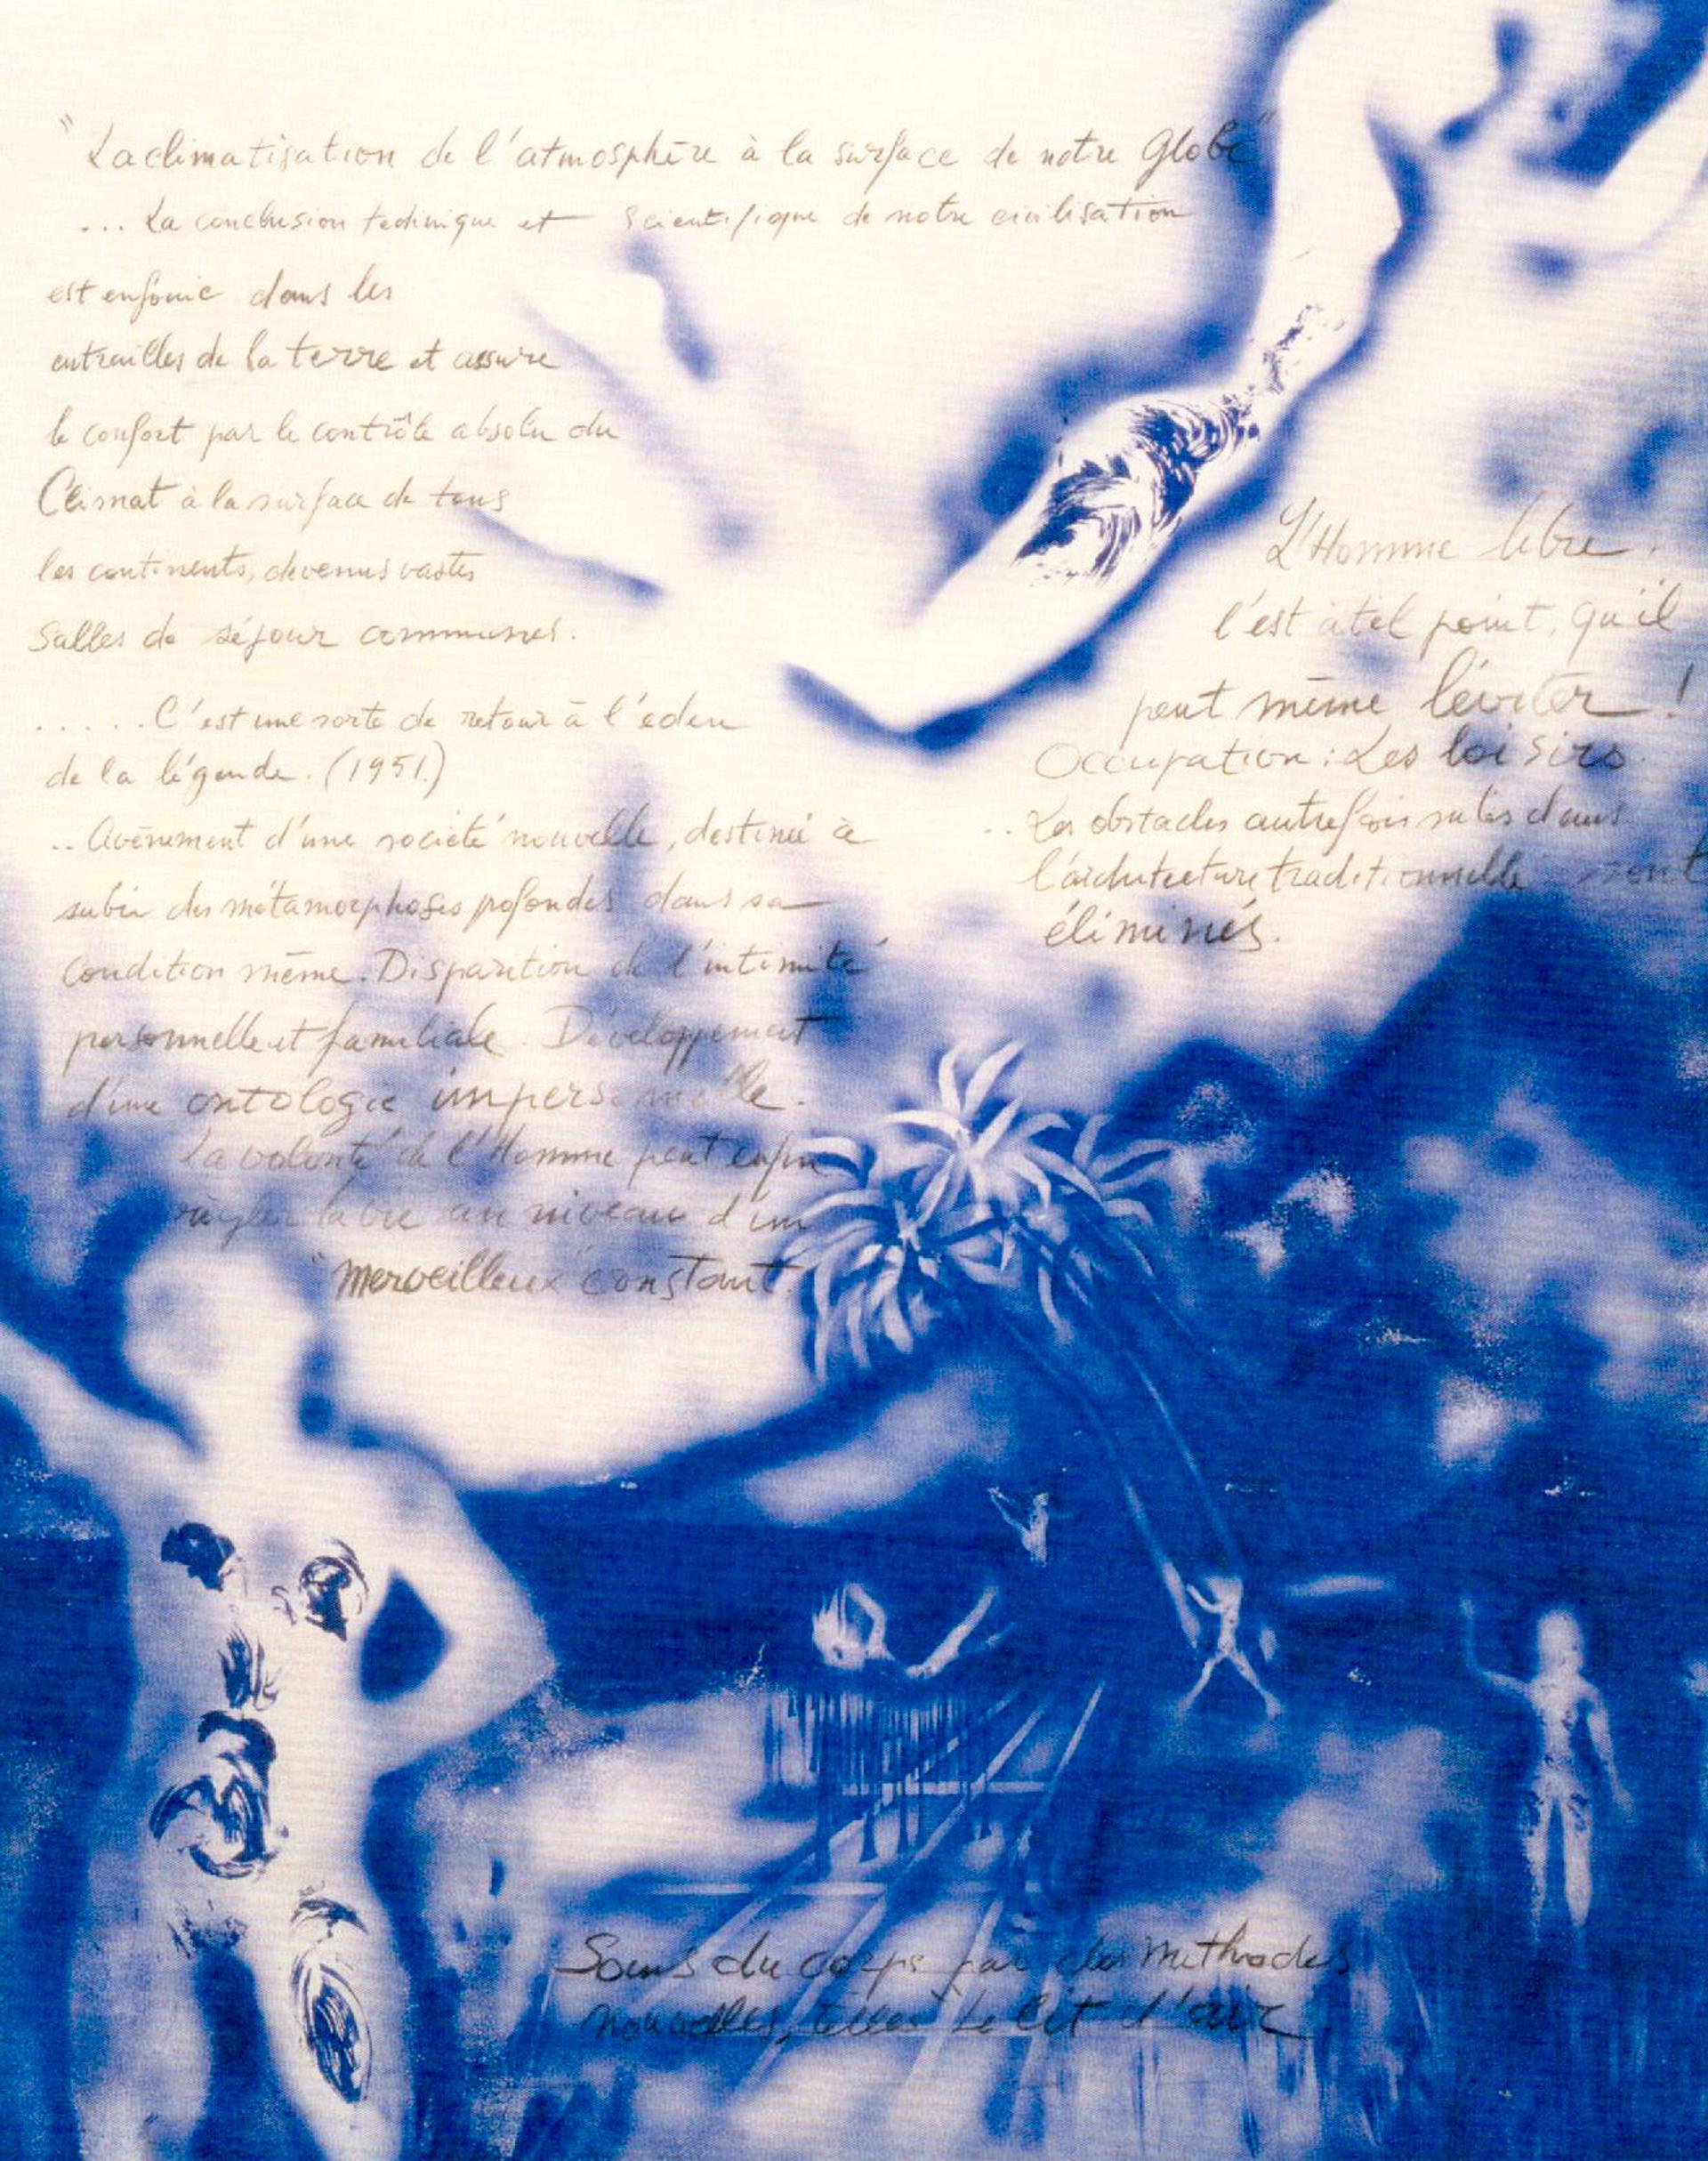 "La climatisation de l'atmosphère à la surface de notre Globe"
... La conclusion technique et scientifique de notre civilisation
est enfouie dans les
entrailles de la terre et assure
le confort par le contrôle absolu du
Climat à la surface de tous
les continents, devenus vastes
Salles de séjour communes.
..... C'est une sorte de retour à l'éden
de la légende. (1951.)
.. Avènement d'une société nouvelle, destinée à
subir des métamorphoses profondes dans sa
condition même. Disparition de l'intimité
personnelle et familiale. Développement
d'une ontologie impersonnelle.
La volonté de l'Homme peut enfin
régler la vie au niveau d'un
"merveilleux" constant.
L'Homme libre.
l'est à tel point, qu'il
peut même léviter !
Occupation : Les loisirs.
.. Les obstacles autrefois subis dans
l'architecture traditionnelle sont
éliminés.
Soins du corps par des méthodes
nouvelles, telles le lit d'air